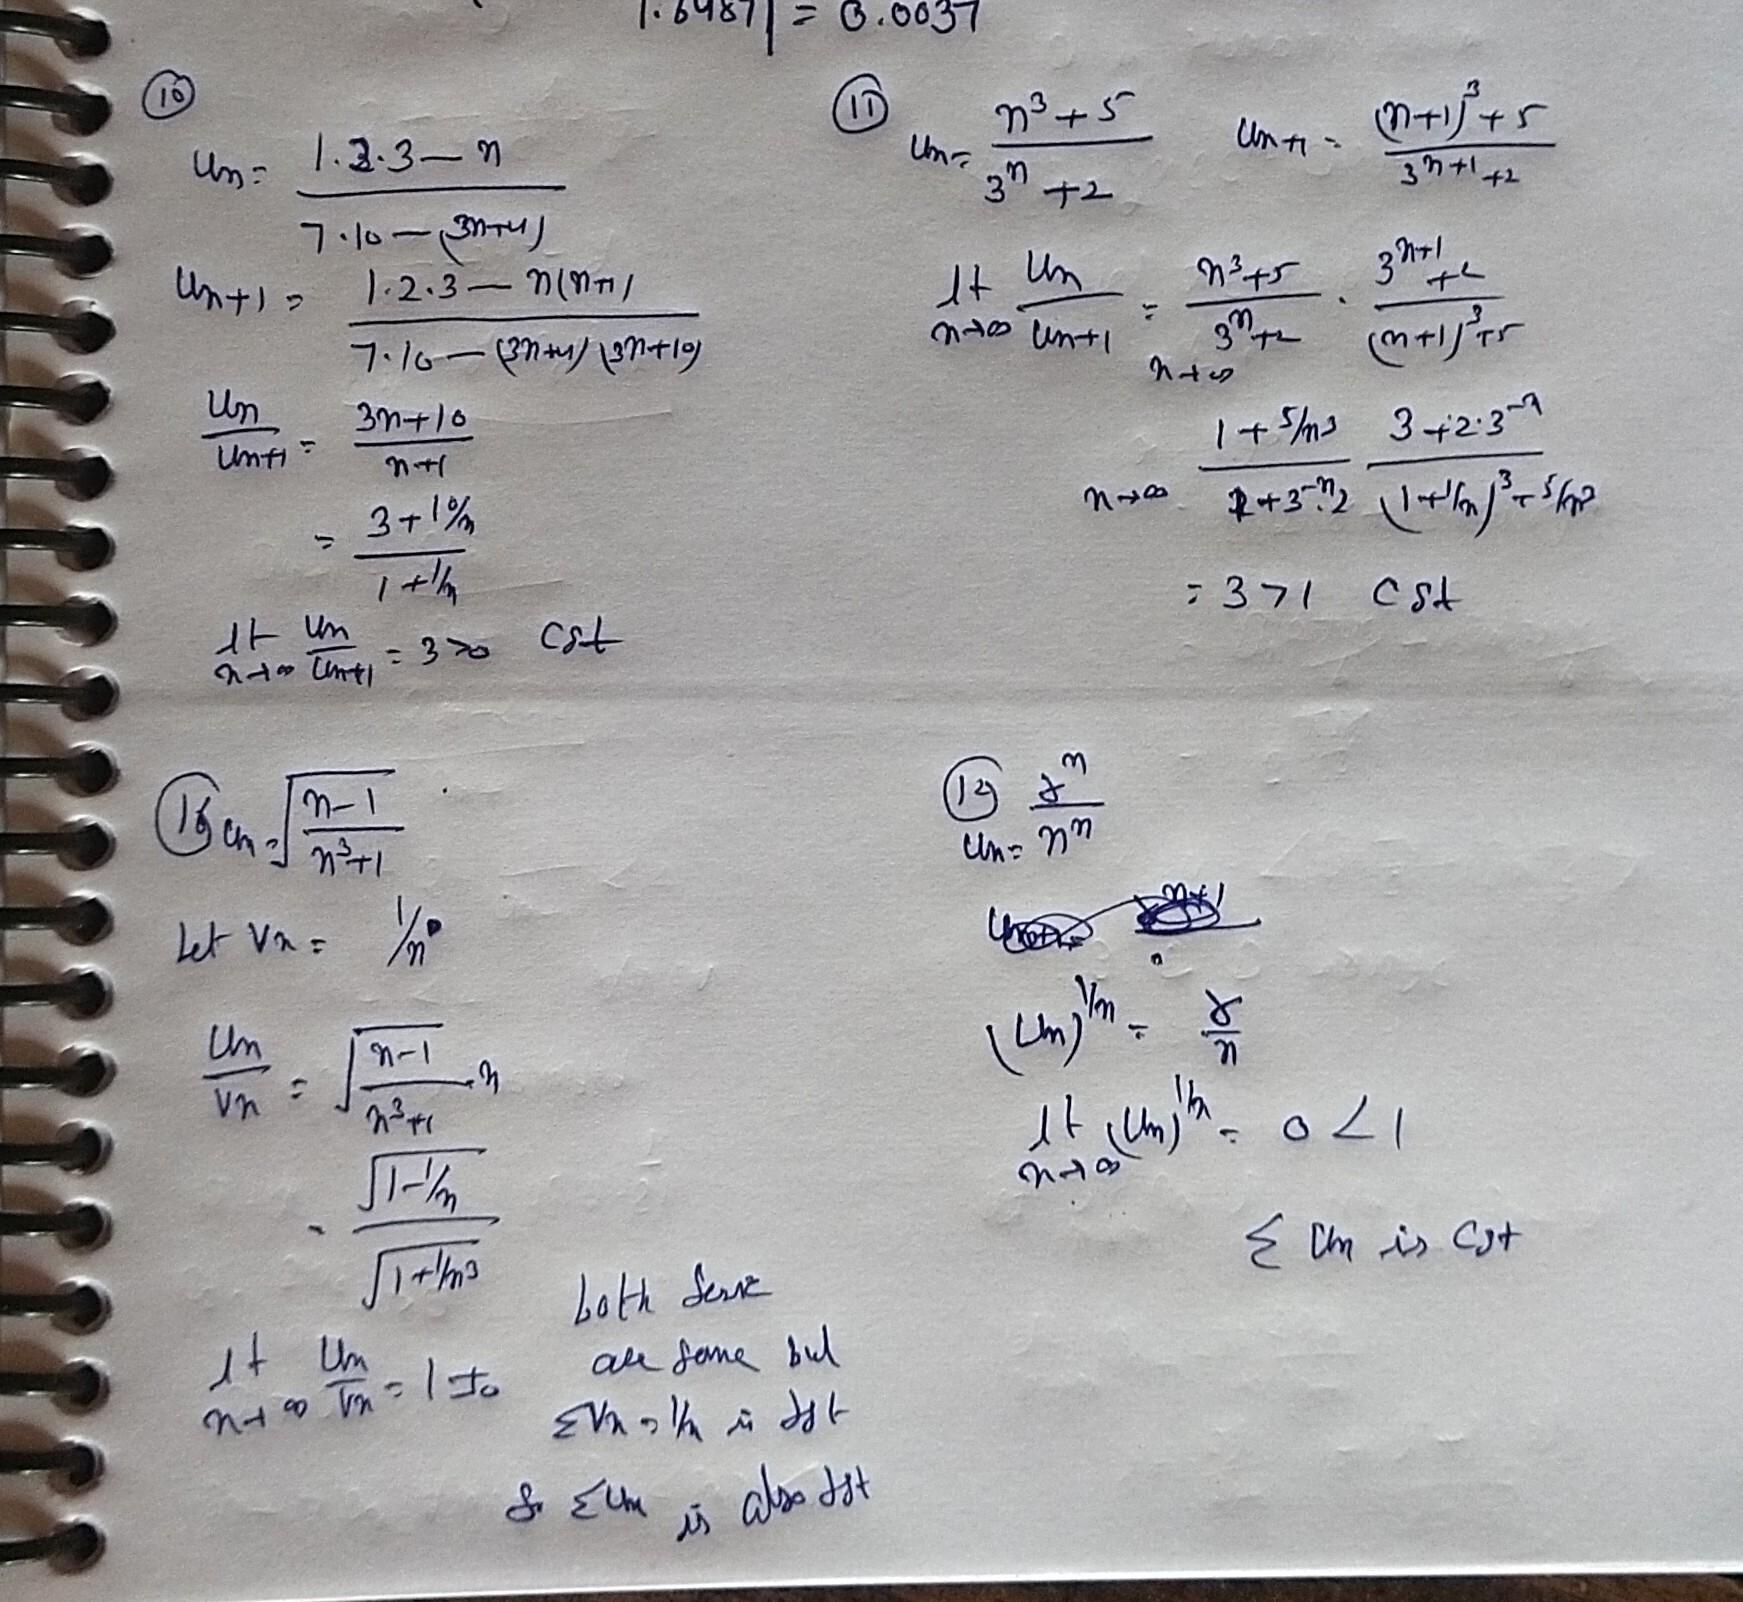 1.6487| = 0.0037
(10)
Un = 1.2.3 — n / 7.10 — (3n+4)
Un+1 = 1.2.3 — n(n+1 / 7.10 — (3n+4) (3n+10)
Un / Un+1 = 3n+10 / n+1
= 3+10/n / 1+1/n
lt n→∞ Un / Un+1 = 3>0 Cgt
(11)
Un = n³+5 / 3ⁿ+2 Un+1 = (n+1)³+5 / 3ⁿ⁺¹+2
lt n→∞ Un / Un+1 = n→∞ n³+5 / 3ⁿ+2 . 3ⁿ⁺¹+2 / (n+1)³+5
n→∞ 1+5/n³ / 1+3⁻ⁿ.2 3+2.3⁻ⁿ / (1+1/n)³+5/n³
= 3>1 Cgt
Un = √(n-1 / n³+1)
Let Vn = 1/n
Un / Vn = √(n-1 / n³+1) . n
= √(1-1/n) / √(1+1/n³)
lt n→∞ Un / Vn = 1 ≠0
both
are same but
ΣVn = 1/n is dgt
So ΣUn is also dgt
Un = xⁿ / nⁿ
(Un)^1/n = x / n
lt n→∞ (Un)^1/n = 0 < 1
Σ Un is Cgt